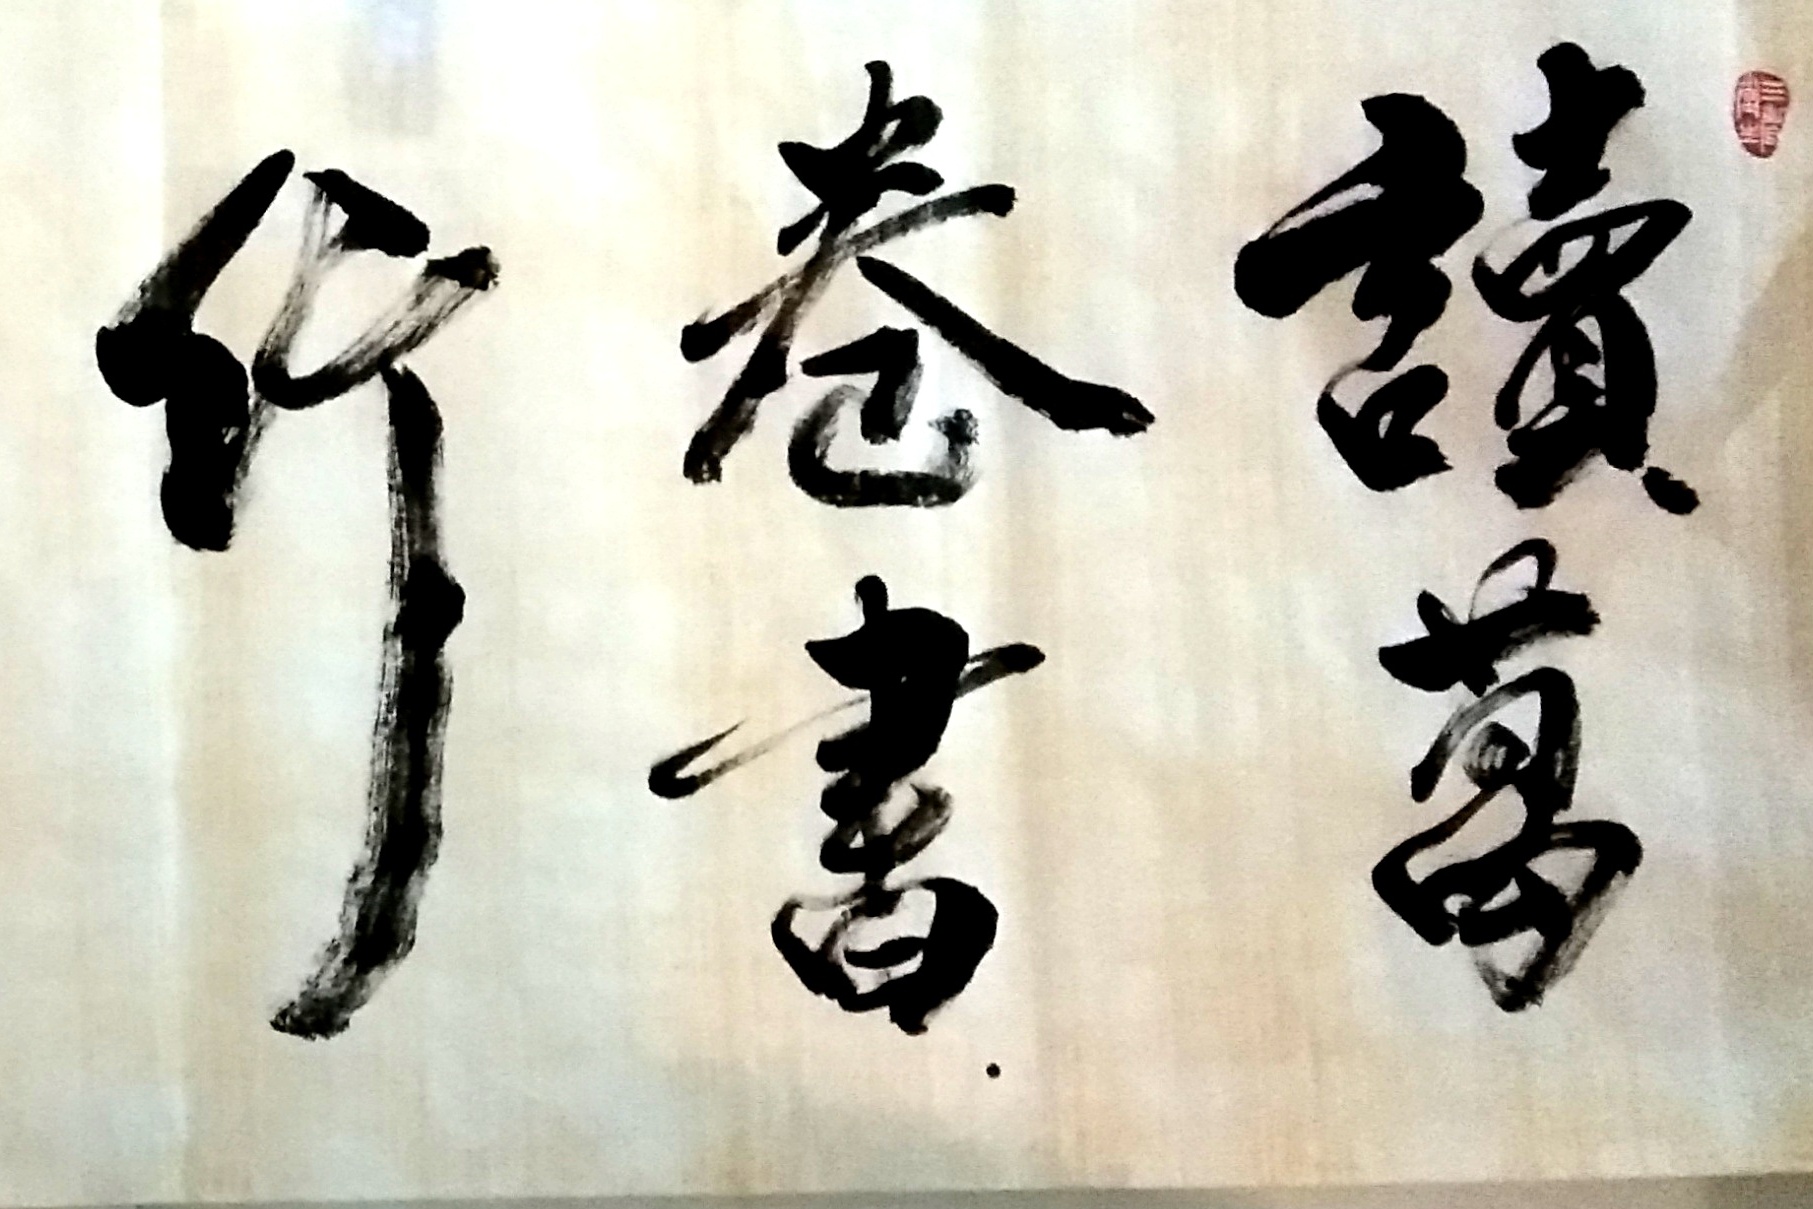 讀萬
卷書
行